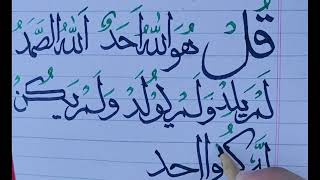 قُلْ هُوَ اللّٰهُ اَحَدٌ اَللّٰهُ الصَّمَدُ
لَمْ يَلِدْ وَلَمْ يُولَدْ وَلَمْ يَكُنْ
لَهٗ كُفُوا احد